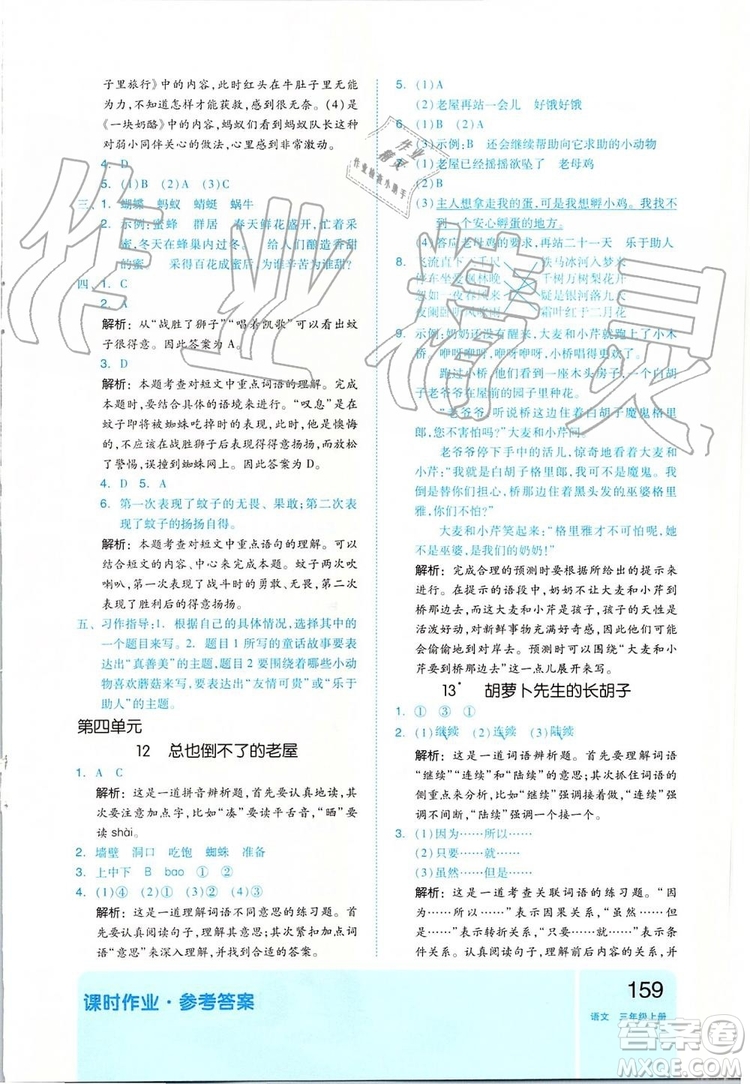 子里旅行》中的内容，此时红头在牛肚子里无能
为力，不可能获救，感到很无奈。(4)是《
一块奶酪》中的内容，是蚂蚁们对蚂蚁队长这种
对弱小同伴关心的做法，十分赞同。
4. D
5. (1)B (2)A
三、1. 蝴蝶 蚂蚁 蜻蜓 蜗牛
2. 示例：蜜蜂 群居 春天鲜花盛开，忙着采
蜜，冬天在蜂巢内过冬。 给人们酿造香甜
的蜜 采得百花成蜜后，为谁辛苦为谁甜！
四、1. C
2. A
解析：从“战胜了狮子”“唱着凯歌”可以看出蚊
子很得意。因此答案为 A。
3. D
解析：本题考查对短文中重点词语的理解。完成
本题时，要结合具体的语境来分析。“叹息”是在
蚊子即将被蜘蛛吃掉时的表现，因此，他是懊悔
的，后悔自己不应该在战胜狮子后而得意忘形，放松
了警惕，误撞到蜘蛛网上。因此答案为 D。
4. D 5. A
6. 第一次表现了蚊子的无畏、果敢；第二次表现
了蚊子的扬扬自得。
解析：本题考查对短文中重点语句的理解。完成
本题时，要围绕内容、中心来完成。蚊子两次吹
喇叭，第一次表现了战斗时的勇敢、无畏，第二次
表现了胜利后的得意扬扬。
五、习作指导：1. 根据自己的具体情况，选择其中的
一个题目来写。2. 题目 1 所写的童话故事要表
达出“真善美”的主题，题目 2 要围绕着小动物
喜欢蘑菇来写，要表达出“友情可贵”或“乐于
助人”的主题。
第四单元
12 总也倒不了的老屋
1. A C
解析：这是一道拼音辨析题，首先要认真读准、读
对，其次要注意易错字音，比如“凑”是平舌音，“晒”要
读 shài。
2. 墙壁 洞口 吃饱 蜘蛛 准备
3. 上中下 B bao ① ③
4. (1)④ (2)① (3)② (4)②
解析：这是一道理解词语不同意思的练习题。首
先要认真读句子，然后根据整句话的意思和加点词
语“意思”来深入理解，填出合适的答案。
5. (1)A
(2)老屋再站一会儿 好饿好饿
6. (1)B (2)A
(3)示例：老屋 还会继续帮助向它求助的小动物
7. (1)B
(2)老屋已经摇摇欲坠了 老母鸡
(3)主人想拿走我的蛋，可是我想孵小鸡。我找不到
一个安心孵蛋的地方。
(4)答应老母鸡的要求，再站二十一天 乐于助人
8. 飞流直下三千尺 铁马冰河入梦来
停车坐爱枫林晚 千树万树梨花开
忽如一夜春风来
夜阑卧听风吹雨 霜叶红于二月花
9. 示例：奶奶没有醒来，大麦和小芹跑上了小木
桥，咿呀咿呀，咿呀咿呀，小桥唱得多开心！
跑过小桥，他们看见一座木头房子，一个白胡
子老爷爷在屋前的园子里种花。
“老爷爷，听说桥那边住着白胡子魔鬼格里
郎，是这样的吗？”大麦和小芹问。
老爷爷停下手中的活儿，惊奇地看着大麦和
小芹：“我就是白胡子格里郎，可我不是魔鬼。我
们替你们担心，桥那边住着黑头发的巫婆格里
雅，你们不怕吗？”
大麦和小芹笑起来：“格里雅才不可怕呢，她
不是巫婆，是我们的奶奶！”
解析：完成续写，要合理根据所给出的提示来展
开。在提示的语段中，奶奶不让大麦和小芹到
桥那边去，但大麦和小芹是孩子，孩子的天性是
活泼好动，对新鲜事物充满好奇感，因此他们可能
会偷偷地到对岸去。续写时，就可以围绕大麦和小
芹要去桥那边去这一点儿展开来写。
13* 胡萝卜先生的长胡子
1. ① ③ ①
2. (1)继续 (2)连续 (3)陆续
解析：这是一道词语辨析题。首先要了解词语
“继续”“连续”和“陆续”的意思；其次要了解词语的
侧重点不同，比如“继续”强调接着做，“连续”强调
一个接一个。
3. (1)因为……所以……
(2)只要……就……
(3)虽然……但是……
解析：这是一道考查关联词语的练习题。“因
为……所以……”表示因果关系，“虽然……但
是……”表示转折关系，“只要……就……”表示
条件关系。认真阅读句子，了解前后的关系，并
课时作业·参考答案
159
语文 三年级上册
作业精灵
作业精灵
作业检查小助手
答案圈
MXQE.COM